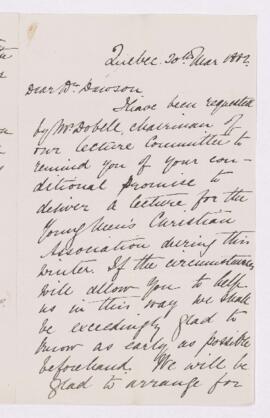 Quebec 20th Mar 1882.
Dear Dr. Dawson,
I have been requested
by Mr Dobell, chairman of
our lecture committee to
remind you of your con-
ditional promise to
deliver a lecture for the
Young Men's Christian
Association during this
winter. If the circumstances
will allow you to help
us in this way we shall
be exceedingly glad to
know as early, as possible
beforehand. We will be
glad to arrange for